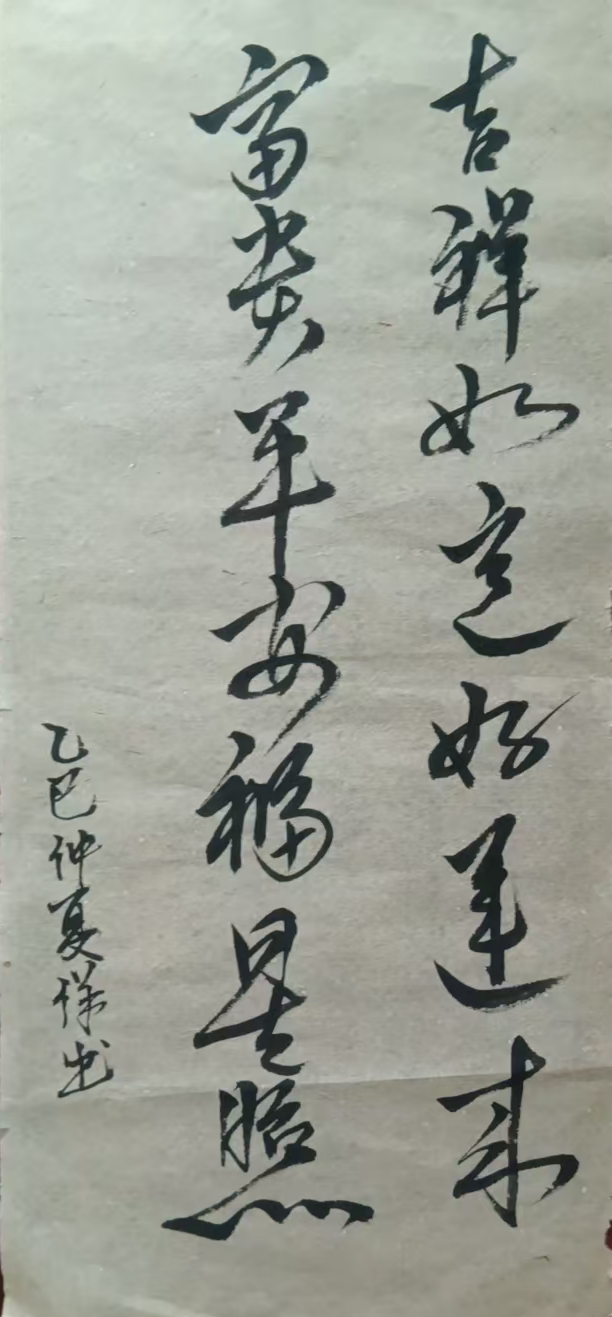 吉祥如意好運来
富贵平安福星照
乙巳仲夏